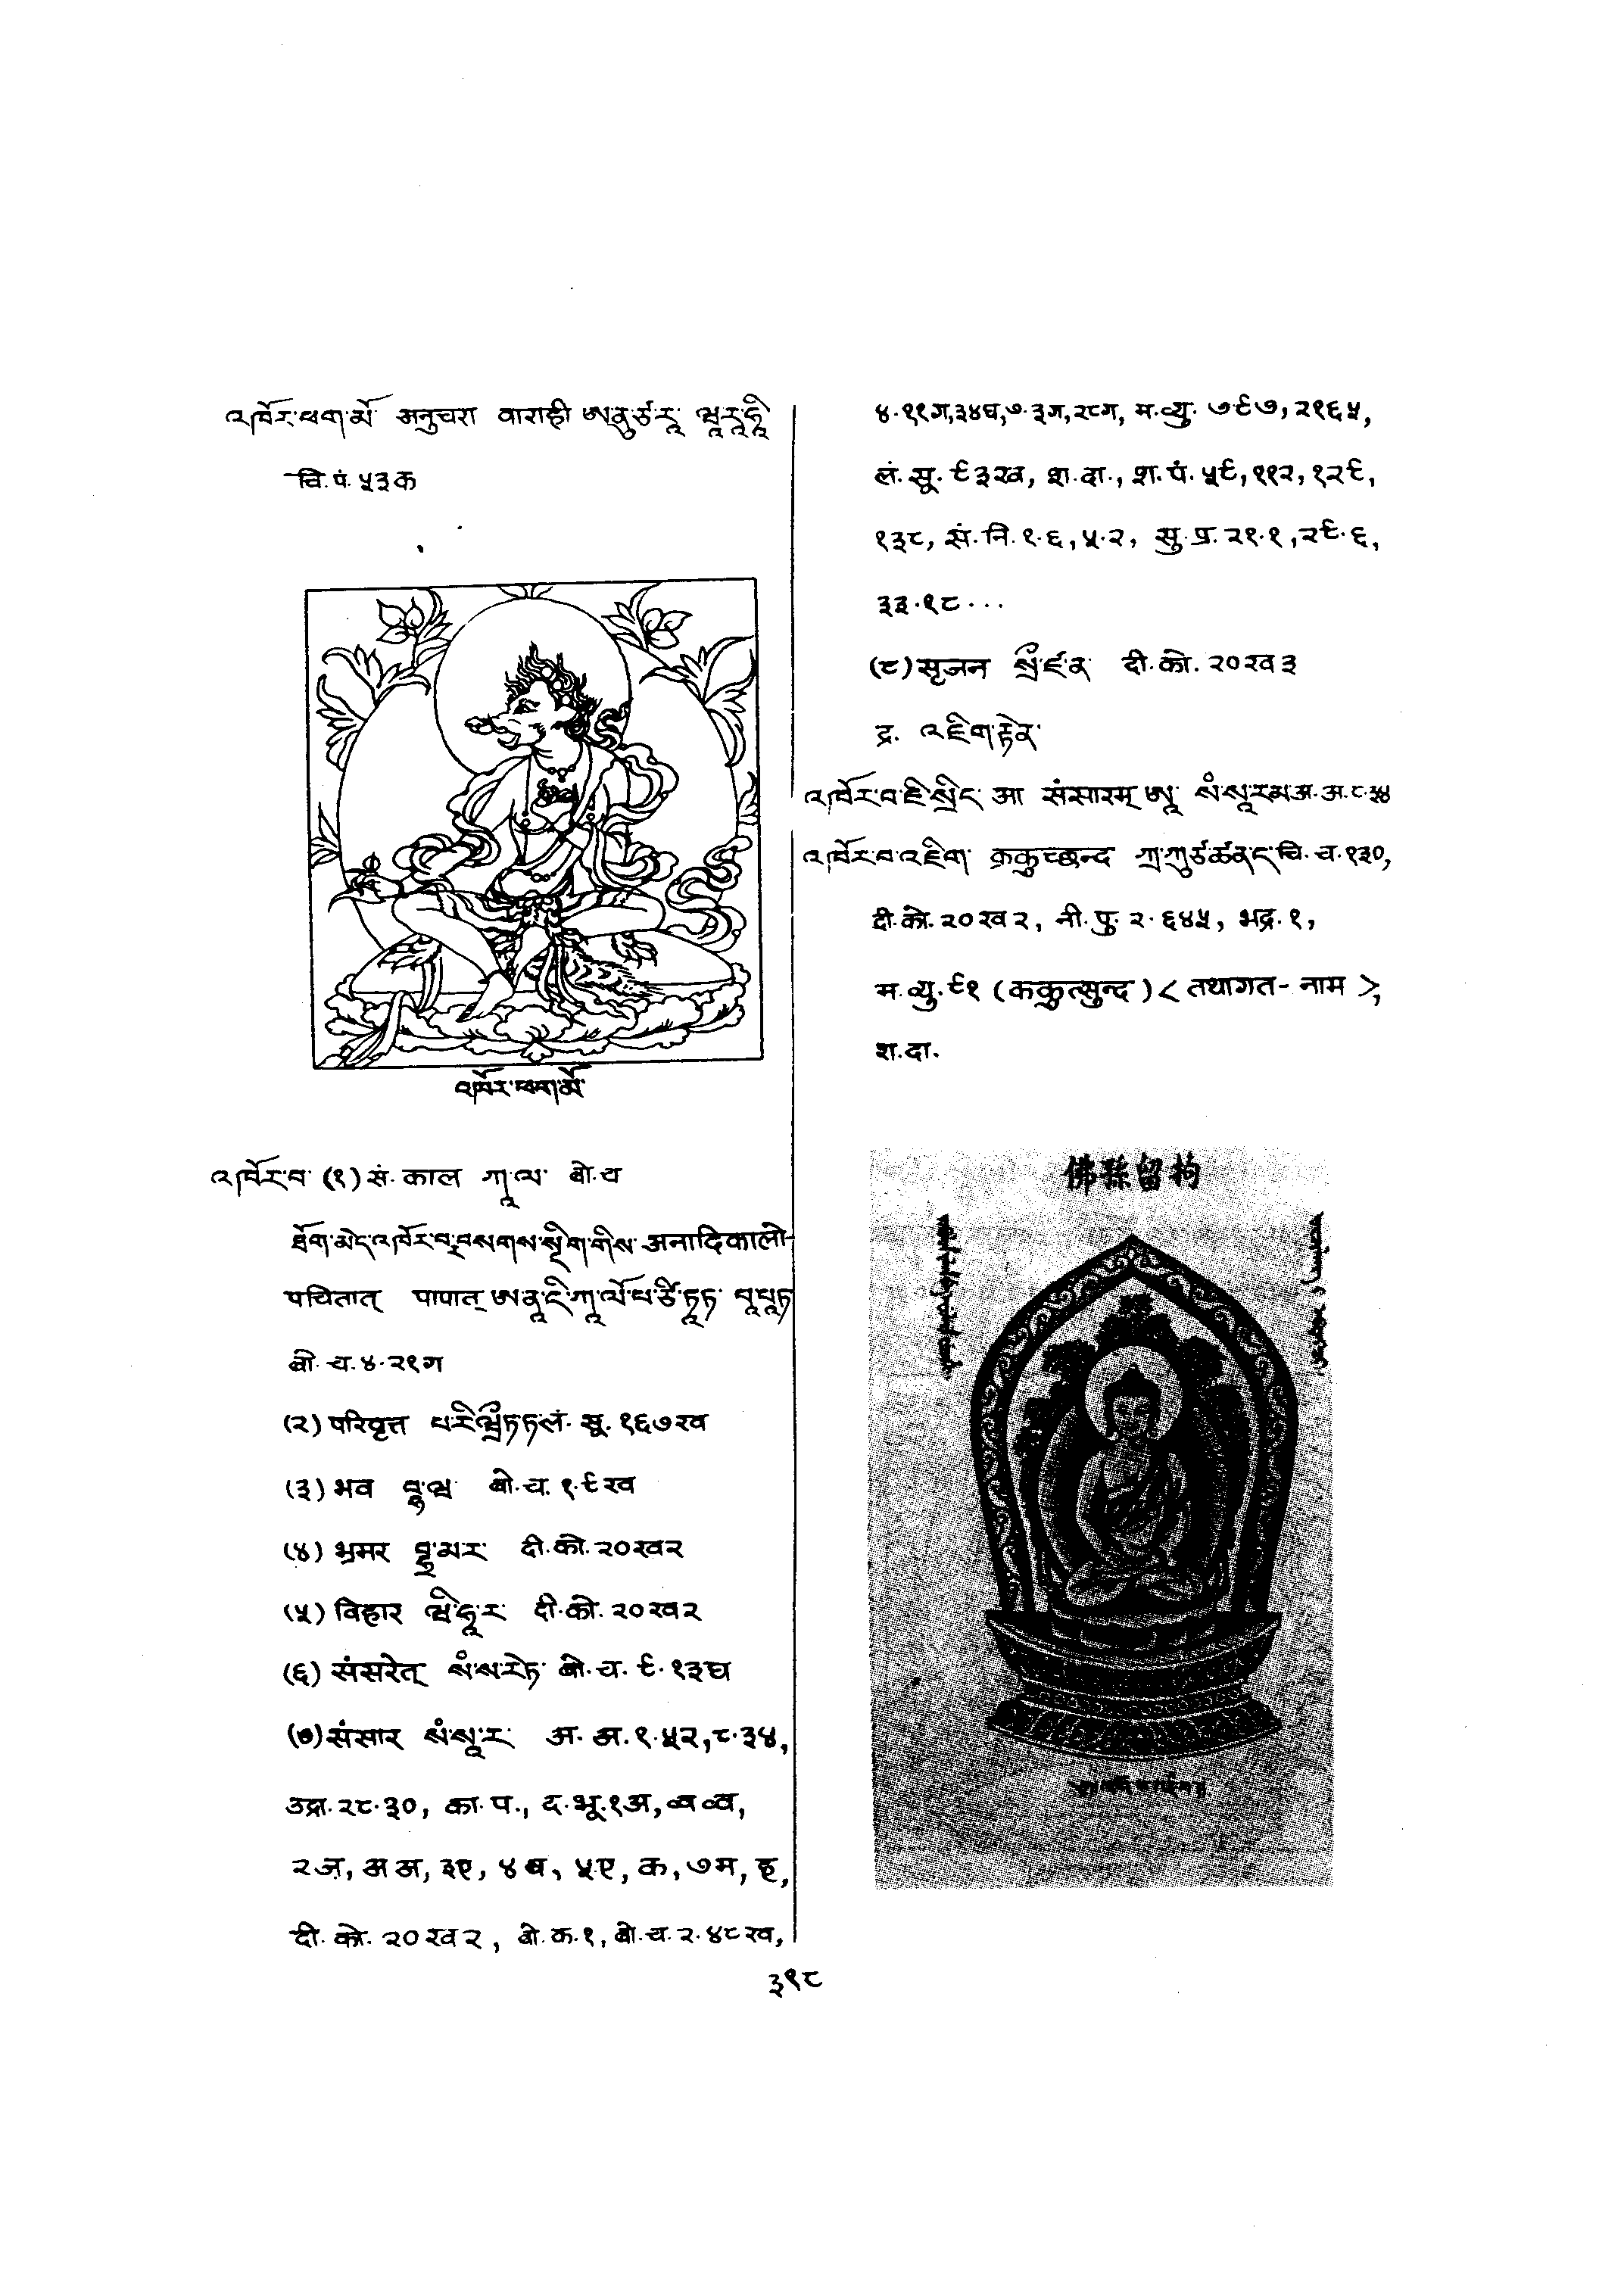 འཁོར་ཕག་མོ་ अनुचरा वाराही ཨ་ནུ་ཙ་རཱ་ ཝཱ་རཱ་ཧཱི་
चि.पं. ५३क
འཁོར་ཕག་མོ་
འཁོར་བ་ (१) सं. काल ཀཱ་ལ་ बो.च
ཐོག་མེད་འཁོར་བར་བསགས་སྡིག་གིས་ अनादिकालो-
पचितात् पापात् ཨ་ནཱ་དི་ཀཱ་ལོ་པ་ཙི་ཏཱ་ཏ་ པཱ་པཱ་ཏ
बो.च.४.२१ग
(२) परिवृत्त པ་རི་ཝྲྀཏ་ཏ लं. सू. १६७ख
(३) भव བྷ་ཝ་ बो.च. १.९ख
(४) भ्रमर བྷྲ་མ་ར་ दी.को. २०ख२
(५) विहार ཝི་ཧཱ་ར་ दी.को. २०ख२
(६) संसरेत् སཾ་ས་རེ་ཏ་ बो.च. ९.१३घ
(७) संसार སཾ་སཱ་ར་ अ. अ. १.५२, ८.३४,
उद्रा. २८.३०, का.प., द.भू.१अ, व्व व्व,
२ज, अ अ, ३ए, ४ब, ५ए, क, ७म, ह,
दी. को. २०ख२, बो.क.१, बो.च.२.४८ख,
४.११ग,३४घ,७.३ग,२८ग, म.व्यु. ७९७, २१६५,
लं. सू. ९३ख, श.दा., श.पं. ५९,११२, १२९,
१३८, सं.नि.१.६,५.२, सु.प्र. २१.१,२९.६,
३३.१८...
(८) सृजन སྲྀ་ཛ་ན་ दी.को. २०ख३
द्र. འཇིག་རྟེན་
འཁོར་བ་ཇི་སྲིད་ आ संसारम् ཨཱ་ སཾ་སཱ་རམ अ.अ.८.३४
འཁོར་བ་འཇིག་ क्रकुच्छन्द ཀྲ་ཀུ་ཙ་ཚན་ད་ चि.च.१३०,
दी.को. २०ख२, नी.पु. २.६४५, भद्र.१,
म.व्यु.९१ (ककुत्सुन्द) < तथागत-नाम >,
श.दा.
佛孫留拘
३९८